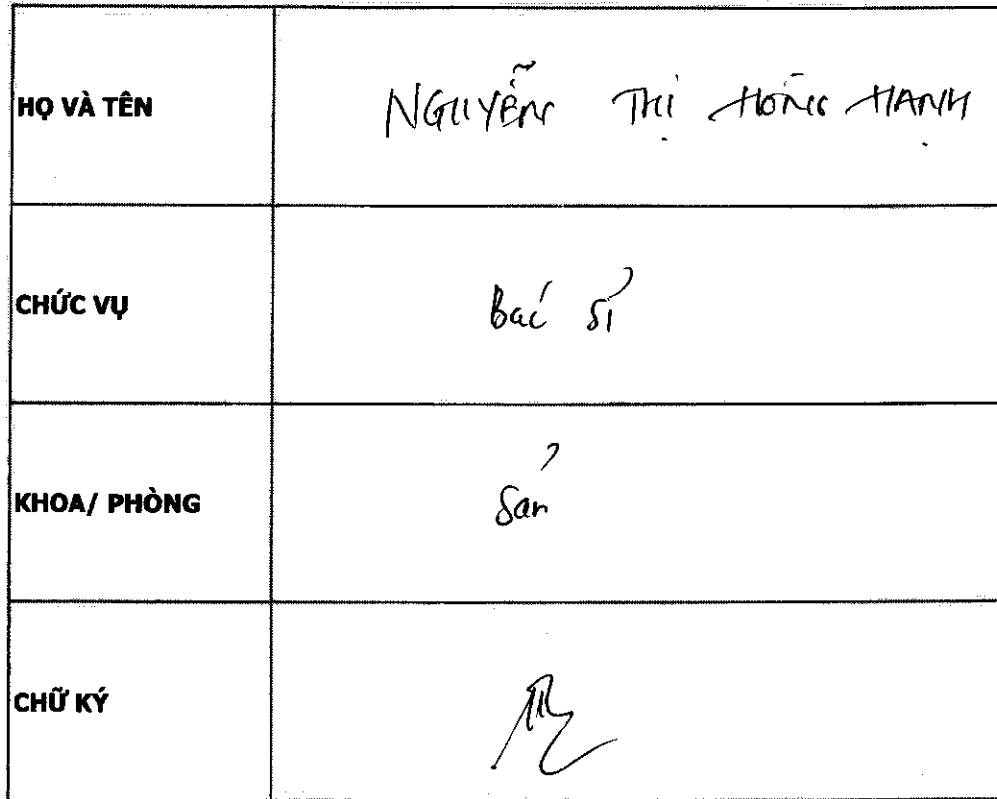 HỌ VÀ TÊN NGUYỄN THỊ HỒNG HẠNH
CHỨC VỤ Bác sĩ
KHOA/ PHÒNG Sản
CHỮ KÝ